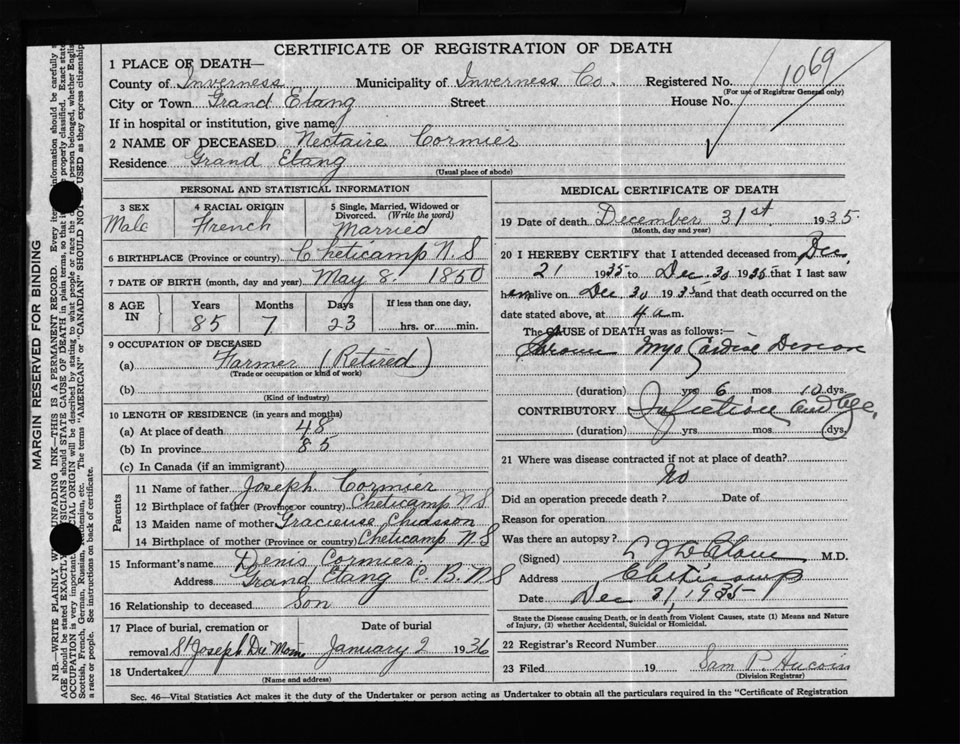 CERTIFICATE OF REGISTRATION OF DEATH
1 PLACE OF DEATH—
County of Inverness Municipality of Inverness Co. Registered No. 1069
(For use of Registrar General only)
City or Town Grand Etang Street House No.
If in hospital or institution, give name
2 NAME OF DECEASED Nectaire Cormier
Residence Grand Etang
(Usual place of abode)
PERSONAL AND STATISTICAL INFORMATION
3 SEX 4 RACIAL ORIGIN 5 Single, Married, Widowed or Divorced. (Write the word)
Male French Married
6 BIRTHPLACE (Province or country) Cheticamp N.S
7 DATE OF BIRTH (month, day and year) May 8. 1850
8 AGE IN Years Months Days If less than one day,
85 7 23 hrs. or min.
9 OCCUPATION OF DECEASED
(a) Farmer (Retired)
(Trade or occupation or kind of work)
(b)
(Kind of industry)
10 LENGTH OF RESIDENCE (in years and months)
(a) At place of death 48
(b) In province 85
(c) In Canada (if an immigrant)
Parents
11 Name of father Joseph Cormier
12 Birthplace of father (Province or country) Cheticamp N S
13 Maiden name of mother Gracieuse Chiasson
14 Birthplace of mother (Province or country) Cheticamp N S
15 Informant's name Denis Cormier
Address Grand Etang C. B. N S
16 Relationship to deceased Son
17 Place of burial, cremation or removal Date of burial
St Joseph Du Moine January 2 1936
18 Undertaker
(Name and address)
MEDICAL CERTIFICATE OF DEATH
19 Date of death December 31st 1935
(Month, day and year)
20 I HEREBY CERTIFY that I attended deceased from Dec
21 1935 to Dec. 30 1935 that I last saw
h em alive on Dec 30 1935 and that death occurred on the
date stated above, at 4 a m.
The CAUSE of DEATH was as follows:—
Chronic Myo Cardiac
(duration) yrs 6 mos 10 dys.
CONTRIBUTORY
(duration) yrs mos dys.
21 Where was disease contracted if not at place of death?
No
Did an operation precede death? Date of
Reason for operation
Was there an autopsy?
(Signed) M.D.
Address Cheticamp
Date Dec 31, 1935
State the Disease causing Death, or in death from Violent Causes, state (1) Means and Nature
of Injury, (2) whether Accidental, Suicidal or Homicidal.
22 Registrar's Record Number
23 Filed 19 Sam P. Aucoin
(Division Registrar)
Sec. 46—Vital Statistics Act makes it the duty of the Undertaker or person acting as Undertaker to obtain all the particulars required in the "Certificate of Registration
MARGIN RESERVED FOR BINDING
N.B.—WRITE PLAINLY UNFADING INK—THIS IS A PERMANENT RECORD. Every information should be carefully
AGE should be stated EXACTLY. SICIANS should STATE CAUSE OF DEATH in plain terms, so that it properly classified. Exact state
OCCUPATION is very important. CIAL ORIGIN will be described by stating to what people or race the person belonged, whether English
Scottish, French, German, Russian, etc. The terms "AMERICAN" or "CANADIAN" SHOULD NOT USED as they express citizenship
a race or people. See instructions on back of certificate.